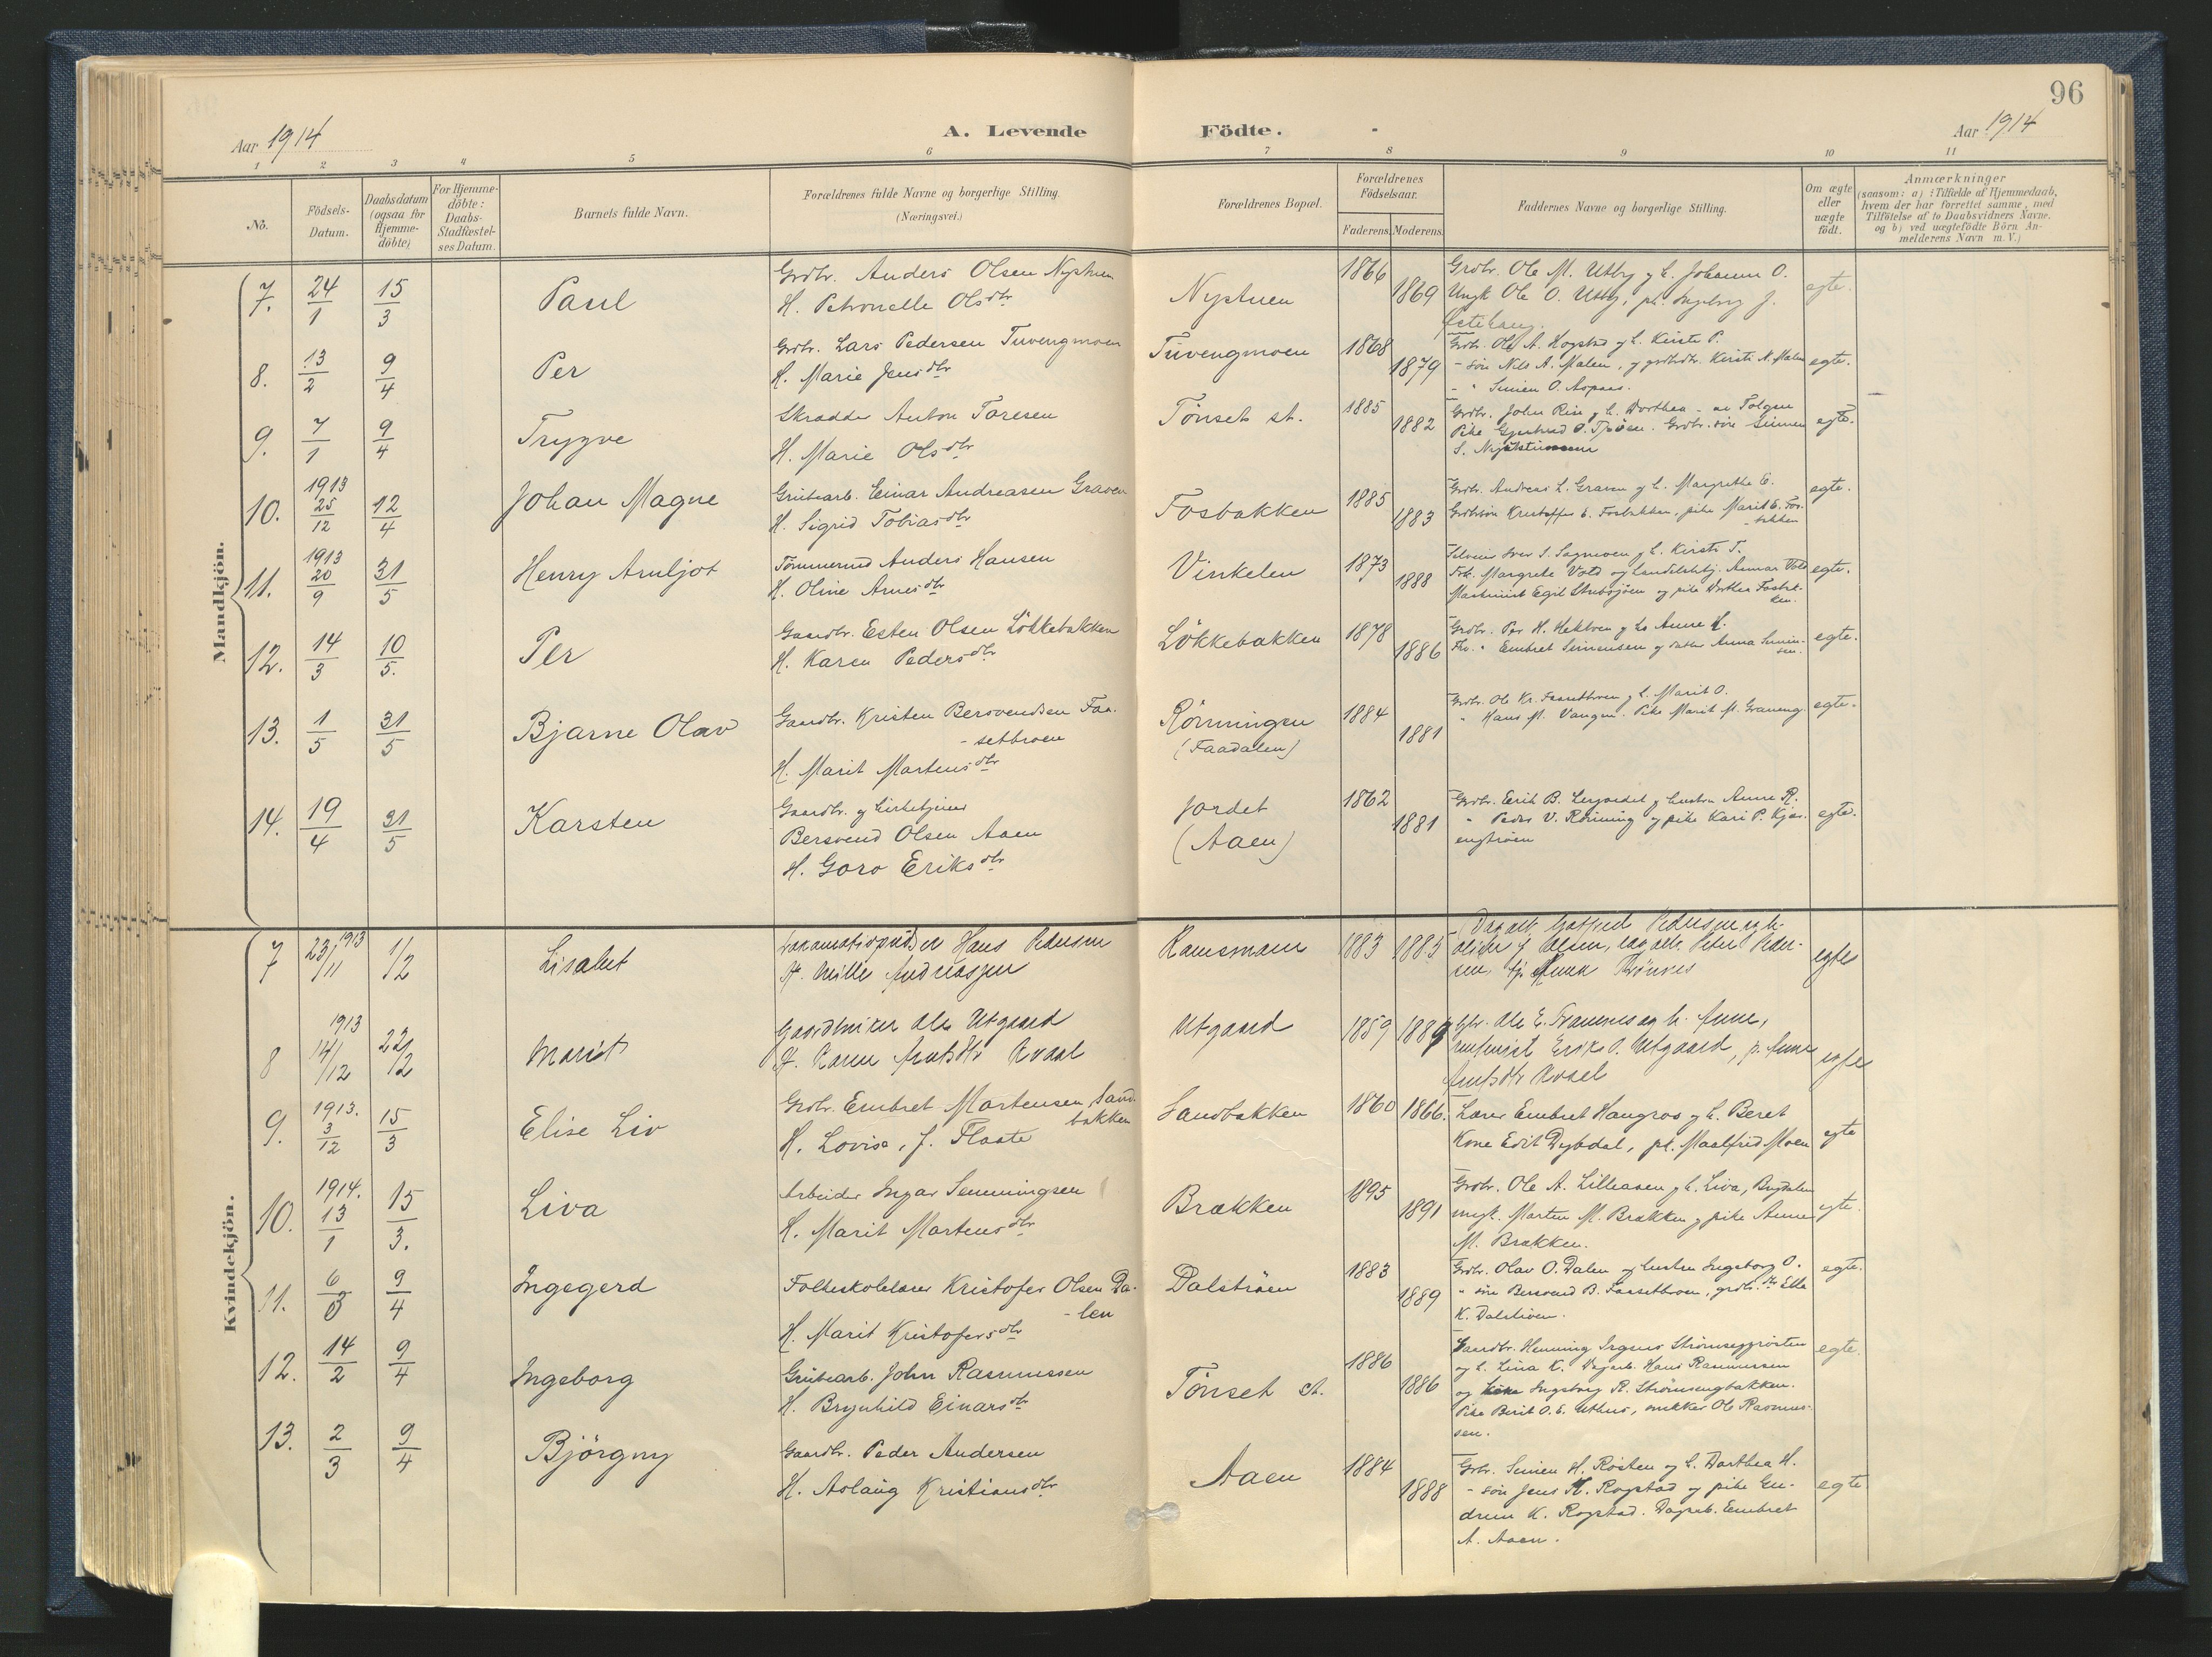 96
Aar 1914
A. Levende Födte.
Aar 1914
1 2 3 4 5 6 7 8 9 10 11
No.
Födsels-
Datum.
Daabsdatum
(ogsaa for
Hjemme-
döbte)
For Hjemme-
döbte:
Daabs-
Stadfæstel-
ses Datum.
Barnets fulde Navn.
Forældrenes fulde Navne og borgerlige Stilling.
(Næringsvei.)
Forældrenes Bopæl.
Forældrenes
Födselsaar.
Faderens. Moderens.
Faddernes Navne og borgerlige Stilling.
Om ægte
eller
uægte
födt.
Anmærkninger
(saasom: a) i Tilfælde af Hjemmedaab,
hvem der har forrettet samme, med
Tilföielse af to Daabsvidners Navne.
og b) ved uægtefödte Börn An-
melderens Navn m. V.)
Mandkjön.
7. 24/1 15/3 Paul
Grdbr. Anders Olsen Nystuen
H. Petronelle Olsdtr
Nystuen 1866 1869
Grdbr. Ole M. Utby og h. Johanne O.
Ungk Ole O. Utby, pk. Ingeborg J.
egte.
8. 13/2 9/4 Per
Grdbr. Lars Pedersen Tuvengmoen
H. Marie Jensdtr
Tuvengmoen 1868 1879
Grdbr. Ole A. Rogstad og h. Kirsti P.
- søn Nils A. Malen, og grdbrdtr. Kirsti N. Malen
- " Simen O. Aspaas.
egte.
9. 7/1 9/4 Trygve
Skrædder Anton Toresen
H. Marie Olsdtr
Tönset st. 1885 1882
Grdbr. John Rise og h. Dorthea - av Tolgen
Pike Gjertrud O. Grdbr. søn Simen
S.
egte.
10. 1913 25/12 12/4 Johan Magne
Grubearb. Einar Andreasen Graven
H. Sigrid Tobiasdtr
Fosbakken 1885 1883
Grdbr. Andreas L. Graven og h. Margrethe E.
Grdbrsøn Kristoffer E. Fosbakken, pike Marit E. Fos-
bakken
egte.
11. 1913 20/9 31/5 Henry Arnljot
Tömmermd Anders Hansen
H. Oline Arnesdtr
Vinkelen 1873 1888
Iver S. Sagmoen og h. Kirsti T.
Frk. Margrete Vold og handelsbtj. Anmar Vold
Maskinist Egil Strubsjöen og pike Dorthea Fosbak-
ken.
egte.
12. 14/3 10/5. Per
Gaardbr. Esten Olsen Lökkebakken
H. Karen Pedersdtr
Lökkebakken 1878 1886
Grdbr. Per H. og h. Anne
" Embret Simensen og datter Anna Simen-
sen.
egte.
13. 1/5 31/5 Bjarne Olav
Gaardbr. Kristen Bersvendsen Faa-
- setbroen
H. Marit Martensdtr
Rönningen
(Faadalen)
1884 1881
Grdbr. Ole Kr. Faasetbroen og h. Marit O.
" Hans M. Vangen. Pike Marit M. Graneng.
egte.
14. 19/4 31/5 Karsten
Gaardbr. og kirketjener
Bersvend Olsen Aaen
H. Goro Eriksdtr
Jordet
(Aaen)
1862 1881
Grdbr. Erik B. og hustru Anne R.
" Peder V. Rönning og pike Kari P. Kjær-
engtröen
egte.
Kvindekjön.
7 23/11 1913 1/2 Lisabet
Lokomotivpudser Hans Pedersen
H. Mille Andreassen
Ramsmoen 1883 1885
Dagarb. Gotfred Pedersen og h.
Olsen, dagarb. Peter Peder-
sen, tj.
egte
8 1913 14/12 22/2 Marit
Gaardbruker Ole Utgaard
H. Karen Arntsdtr Kvaal
Utgaard 1859 1889
Gbr. Ole E. Tramnes og h. Anne,
Erik O. Utgaard, p. Anne
Arntsdtr Kvael
egte
9. 1913. 3/12 15/3 Elise Liv
Grdbr. Embret Martensen Sand-
bakken
H. Lovise, J. Flaate
Sandbakken 1860 1866.
Lærer Embret Haugros og h. Beret
Kone Edit Dybdal, pk. Maalfrid Moen
egte
10. 1914. 13/1 15/3. Liva
Arbeider Ingar Semmingsen
H. Marit Martensdtr
Brækken 1895 1891
Grdbr. Ole A. Lilleaaen og h. Liva, Brydalen
ungk. Marten M. Brækken og pike Anne
M. Brækken.
egte.
11. 6/3 9/4 Ingegerd
Folkeskolelærer Kristofer Olsen Da-
- len
H. Marit Kristofersdtr
Dalströen 1883 1889
Grdbr. Olav O. Dalen og hustru Ingeborg O.
" søn Bersvend B. Faasetbroen, grdbr.dtr Ella
K. Dalströen.
egte.
12. 14/2 9/4 Ingeborg
Grubearb. John Rasmussen
H. Brynhild Einarsdtr
Tönset st. 1886 1886
Gaardbr. Henning
og h. Lina K. Dagarb. Hans Rasmussen
og Ingeborg R. Strömsengbakken.
Pike Berit O. E. Uthus, snekker Ole Rasmus-
sen.
egte.
13. 2/3 9/4 Björgny
Gaardbr. Peder Andersen
H. Aslaug Kristiansdtr
Aaen 1884 1888
Grbr. Simen H. Rosten og h. Dorthea H.
- søn Jens K. Rogstad og pike Gu-
drun K. Rogstad. Dagarb. Embret
A. Aaen.
egte